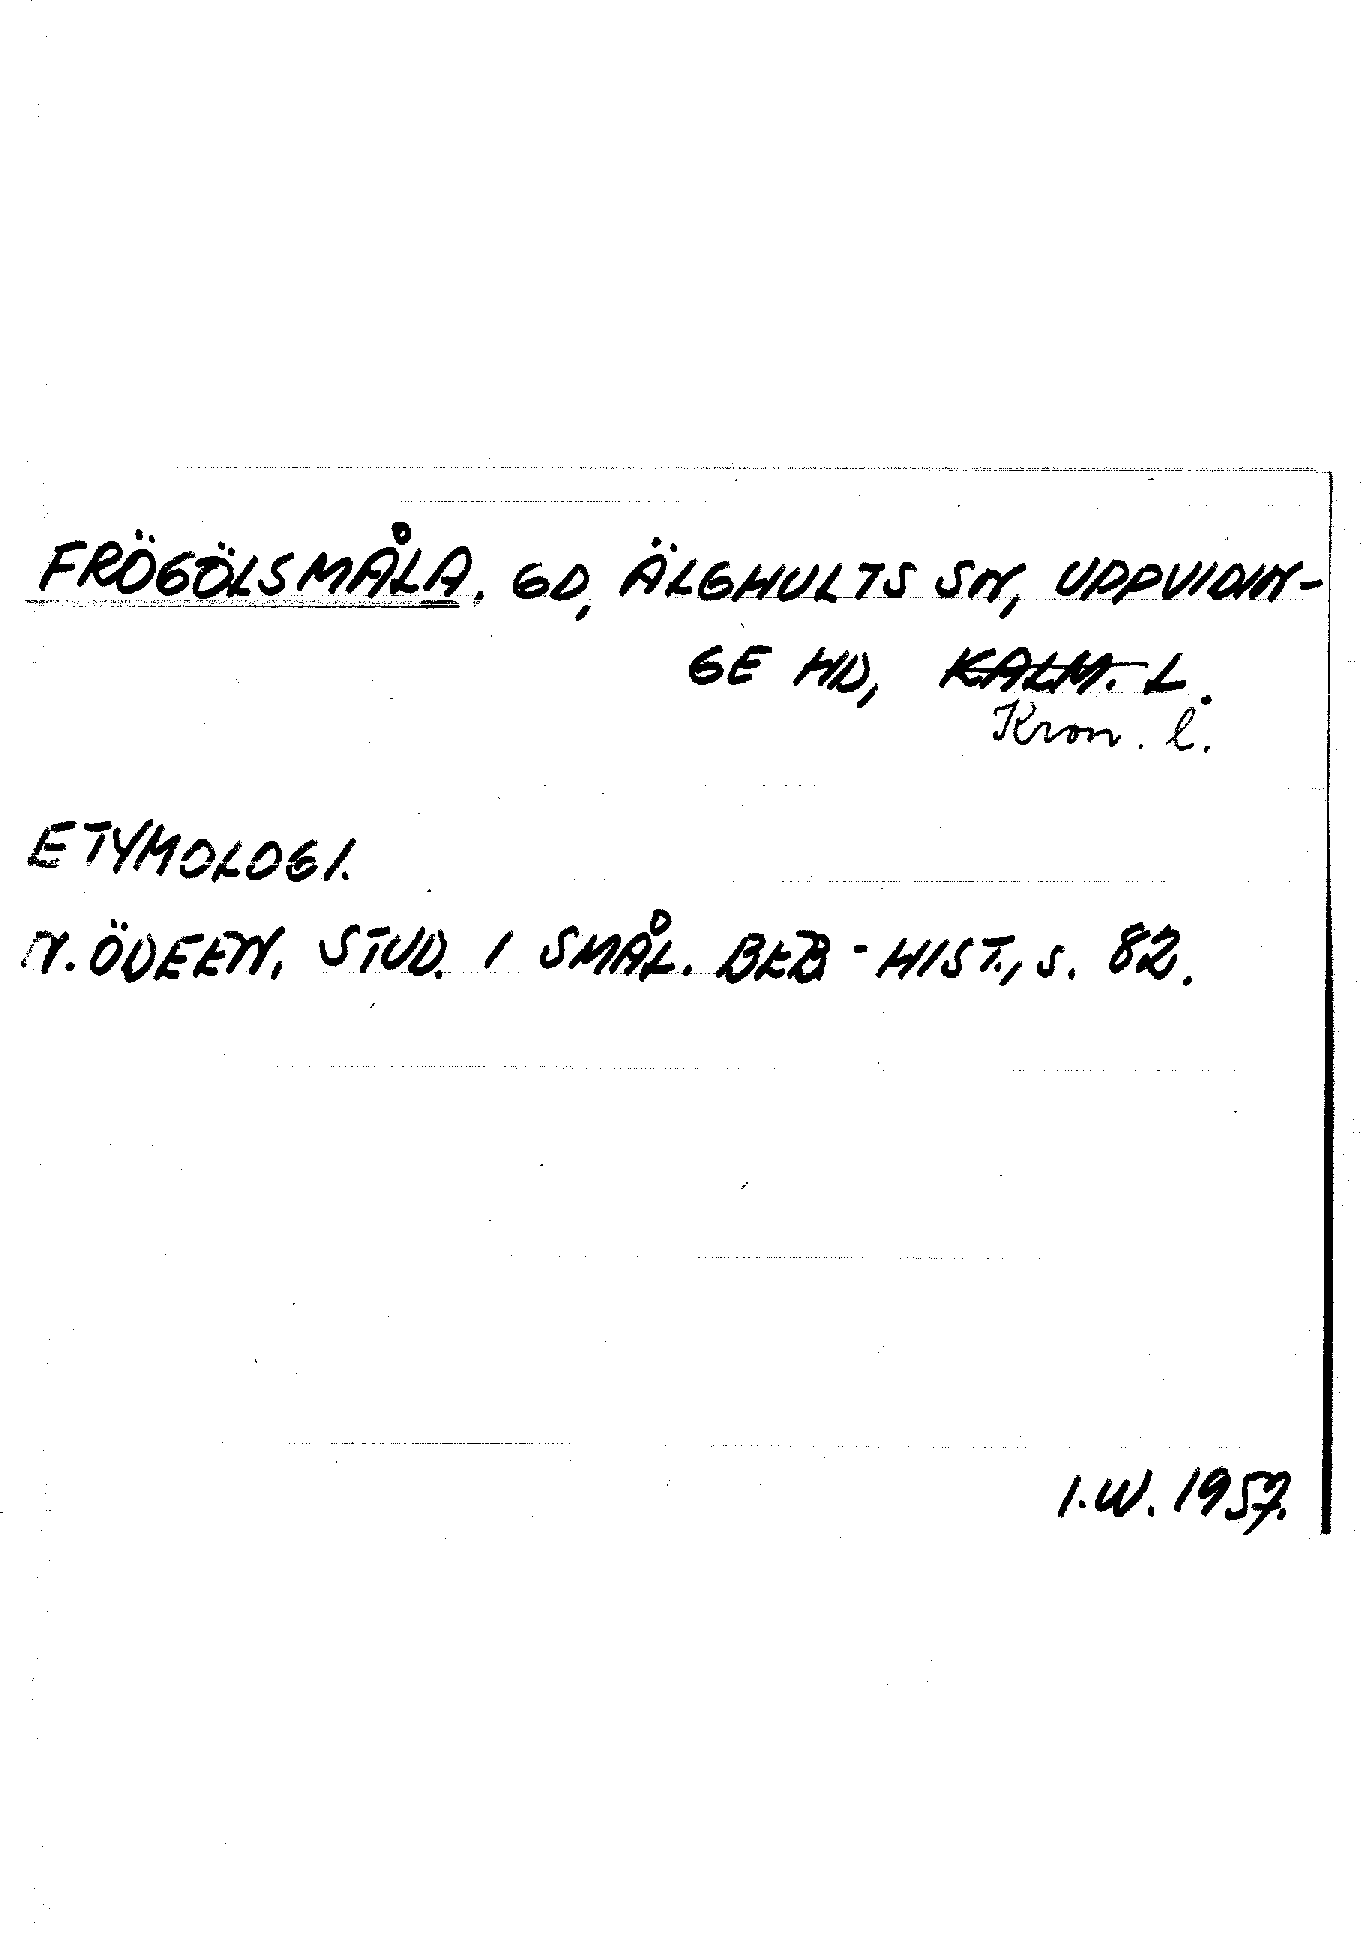 FRÖGÖLSMÅLA. GD, ÄLGHULTS SN, UPPVIDIN-
GE HD, KALM. L.
Kron. l.
ETYMOLOGI.
N. ÖDEEN, STUD. I SMÅL. BEB-HIST., S. 82.
I.W. 1957.